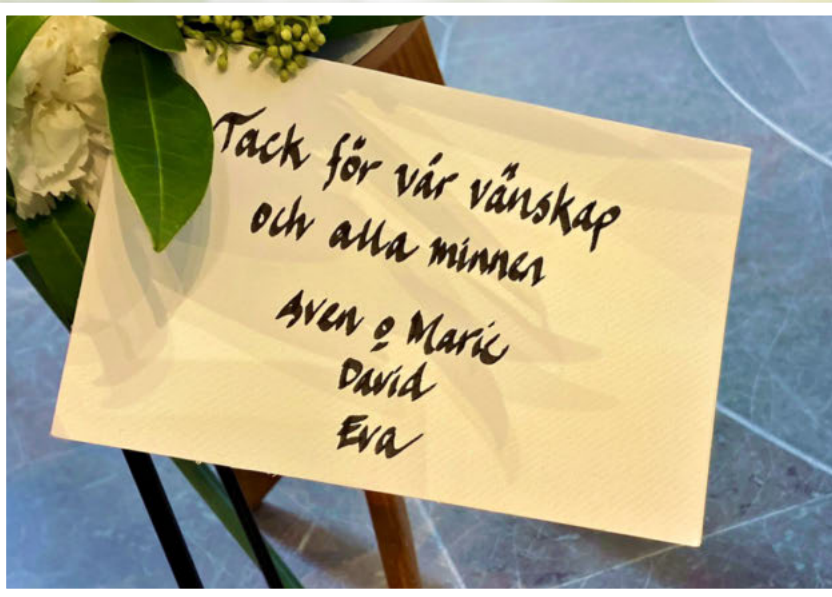 Tack för vår vänskap
och alla minnen
Sven o Marie
David
Eva